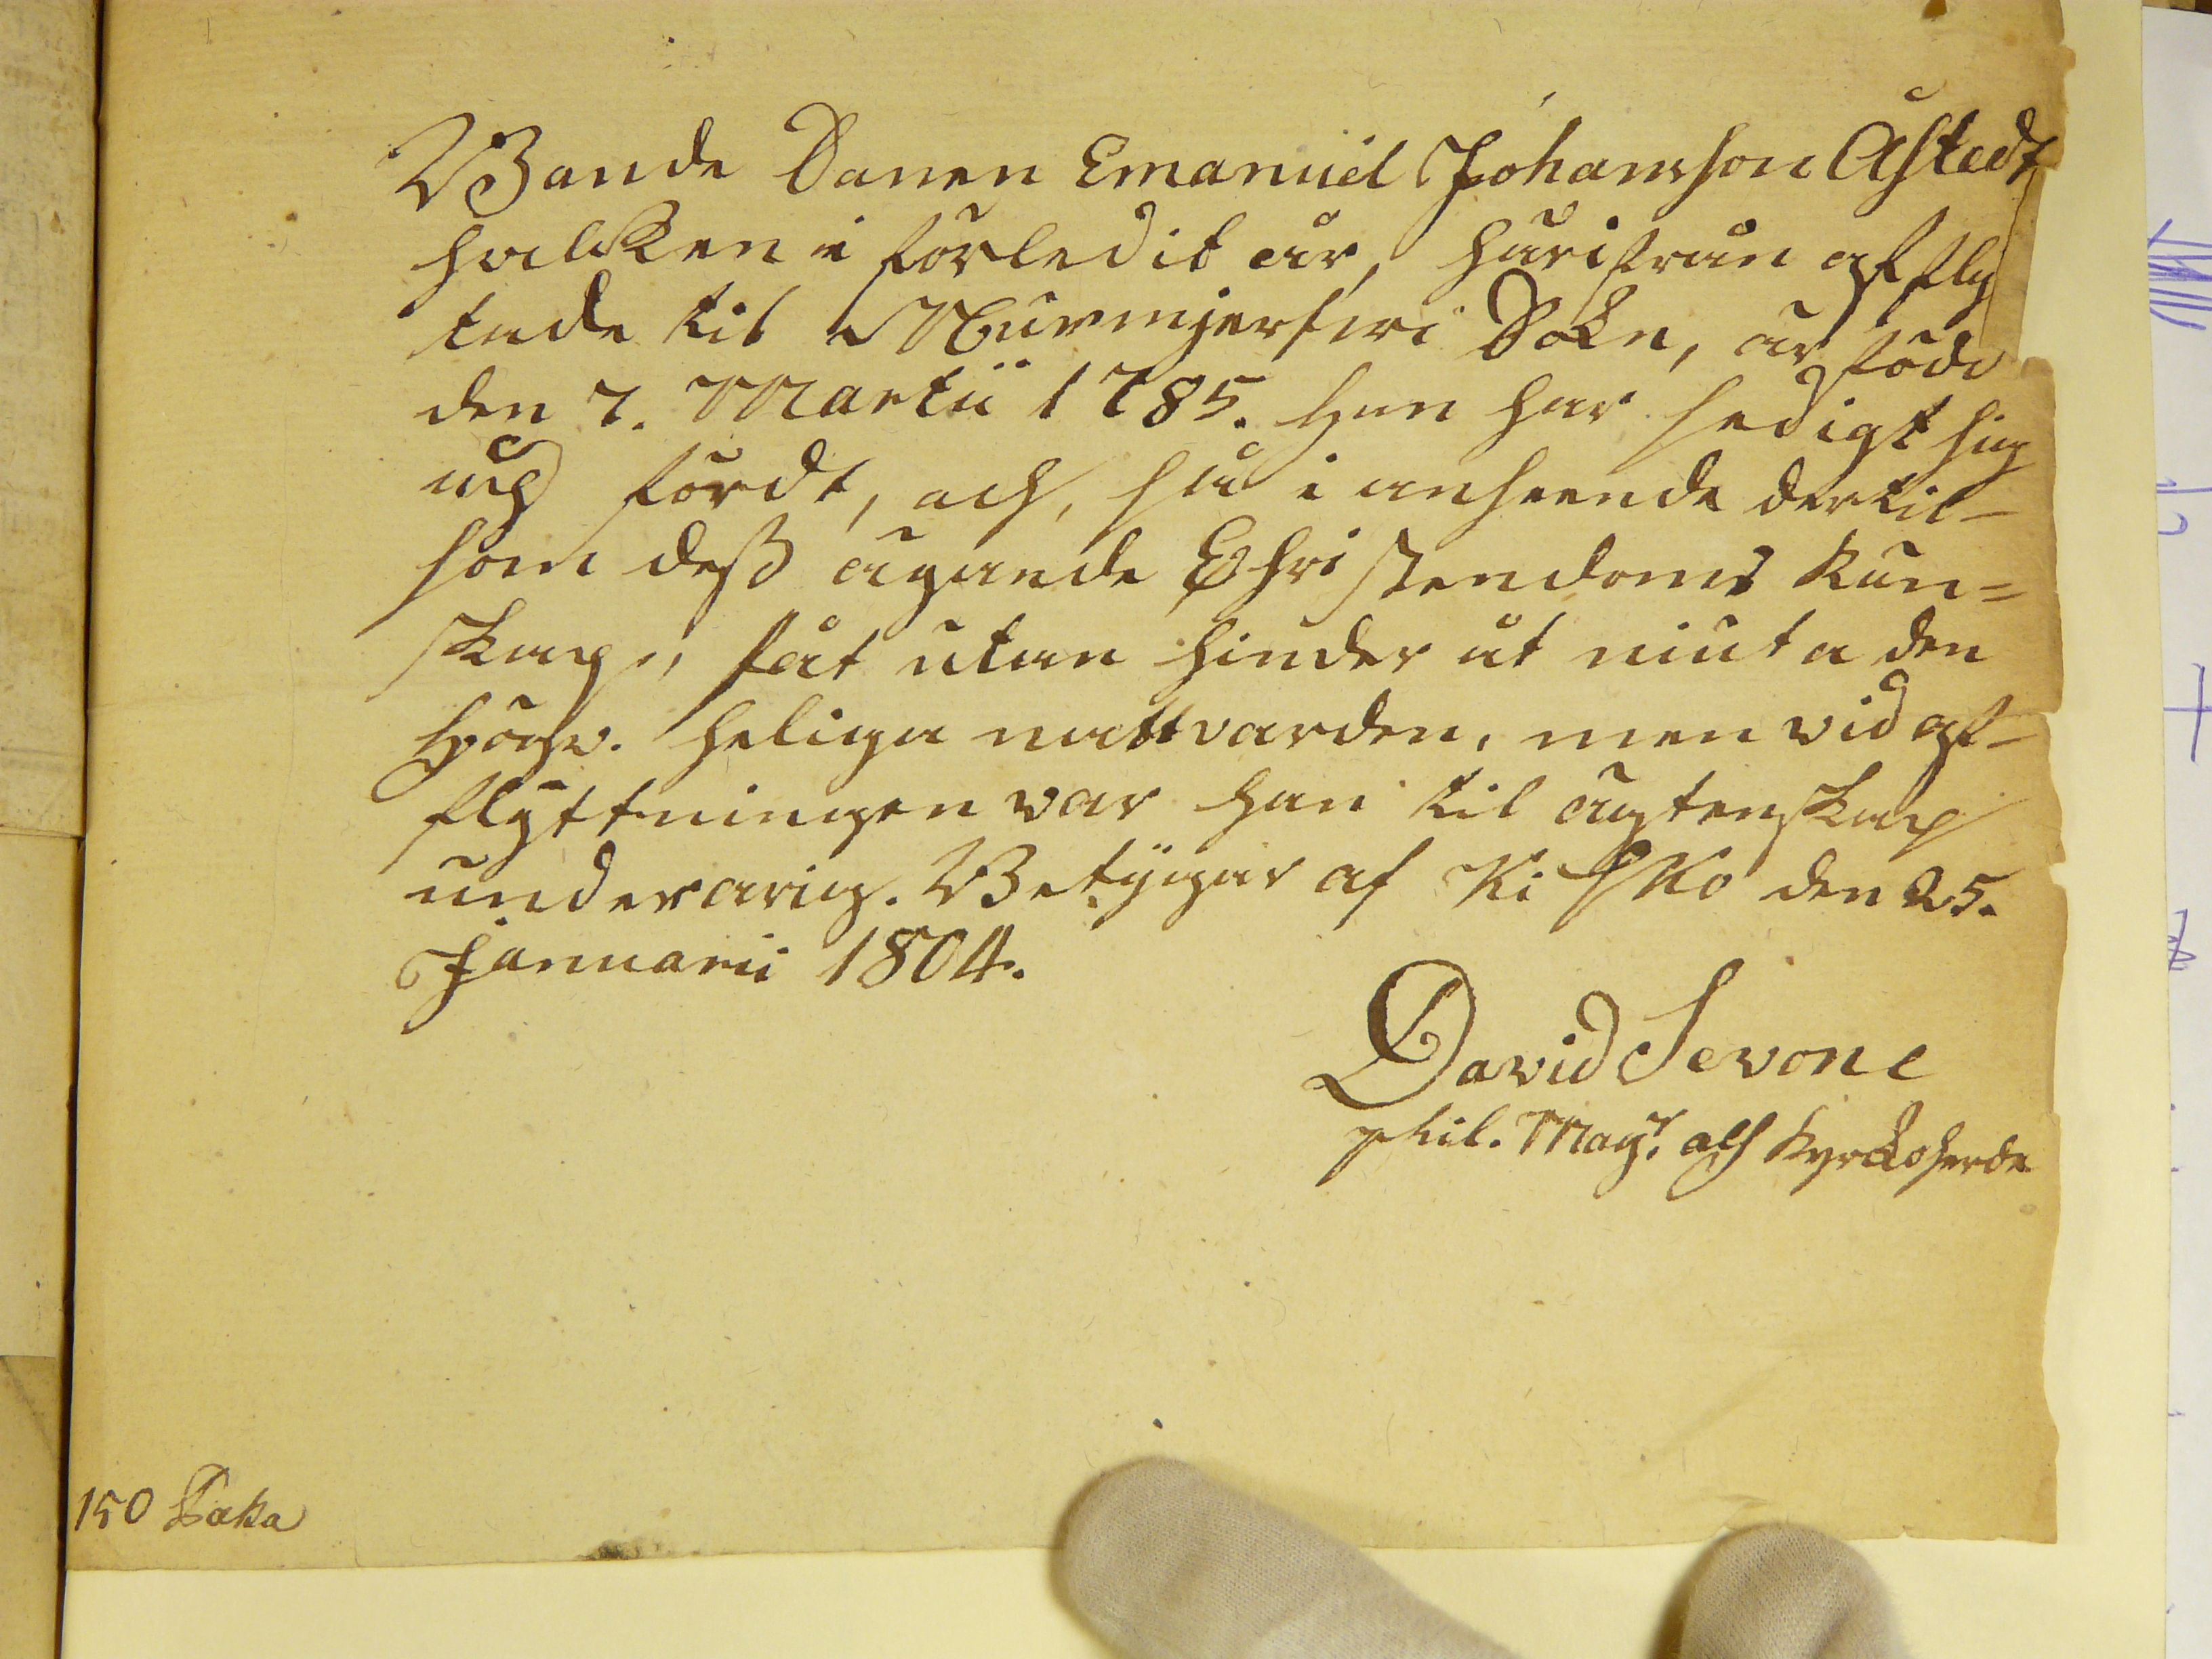 Bonde Sonen Emanuel Johansson Åstedt
hvilken i förledit år, härifrån affly
tade til Nurmijerfwi Sokn, är född
den 7. Martii 1785. Han har sedigt sig
up fördt, och, så i anseende dertil
som dess ägande Christendoms kun=
skap, fåt utan hinder åt niuta den
Högw. heliga nattvarden, men vid af-
flyttningen var han til ägtenskap
underarig. Betygar af Kisko den 25.
Januarii 1804.
David Sevone
phil. Mag. och Kyrckoherde
150